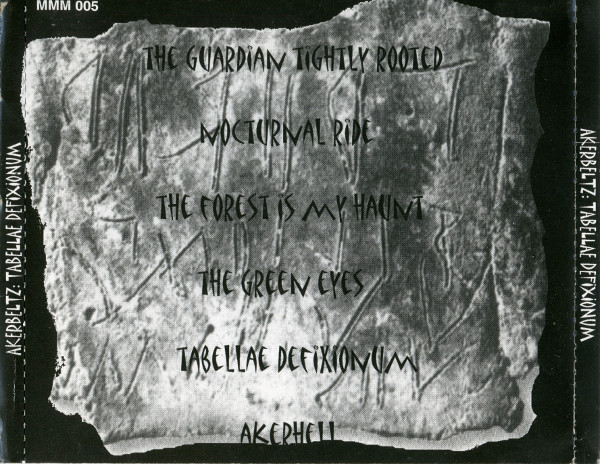 MMM 005
THE GUARDIAN TIGHTLY ROOTED
NOCTURNAL RIDE
THE FOREST IS MY HAUNT
THE GREEN EYES
TABELLAE DEFIXIONUM
AKERHELL
AKERBELTZ: TABELLAE DEFIXIONUM
AKERBELTZ: TABELLAE DEFIXIONUM